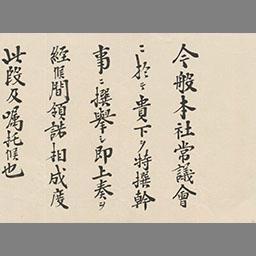 今般本社常議會
ニ於テ貴下ヲ特撰幹
事ニ撰擧シ即上奏ヲ
經候間領諾相成度
此段及嘱托候也